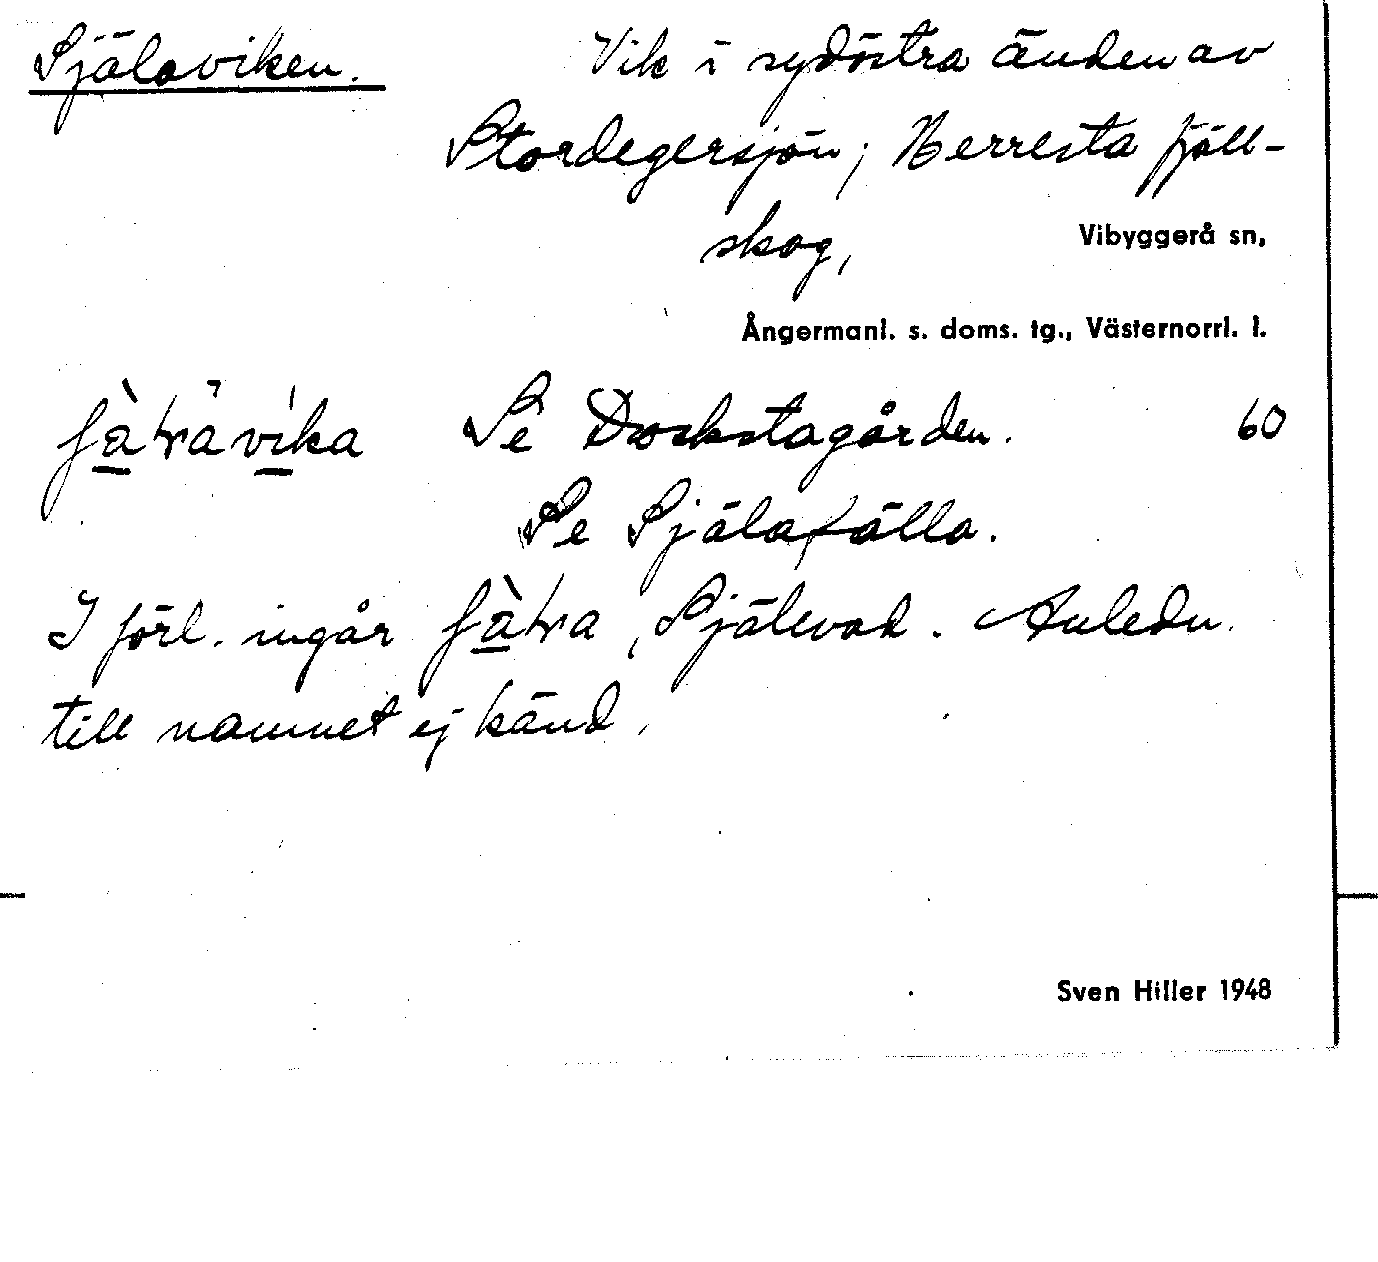 Själaviken. Vik i sydöstra änden av
Stordegersjön; Herresta fjäll-
skog,
Vibyggerå sn,
Ångermanl. s. doms. tg., Västernorrl. l.
Se Dockstagården. 60
Se Själafälla.
I förl. ingår Själevad. Anledn.
till namnet ej känd.
Sven Hiller 1948